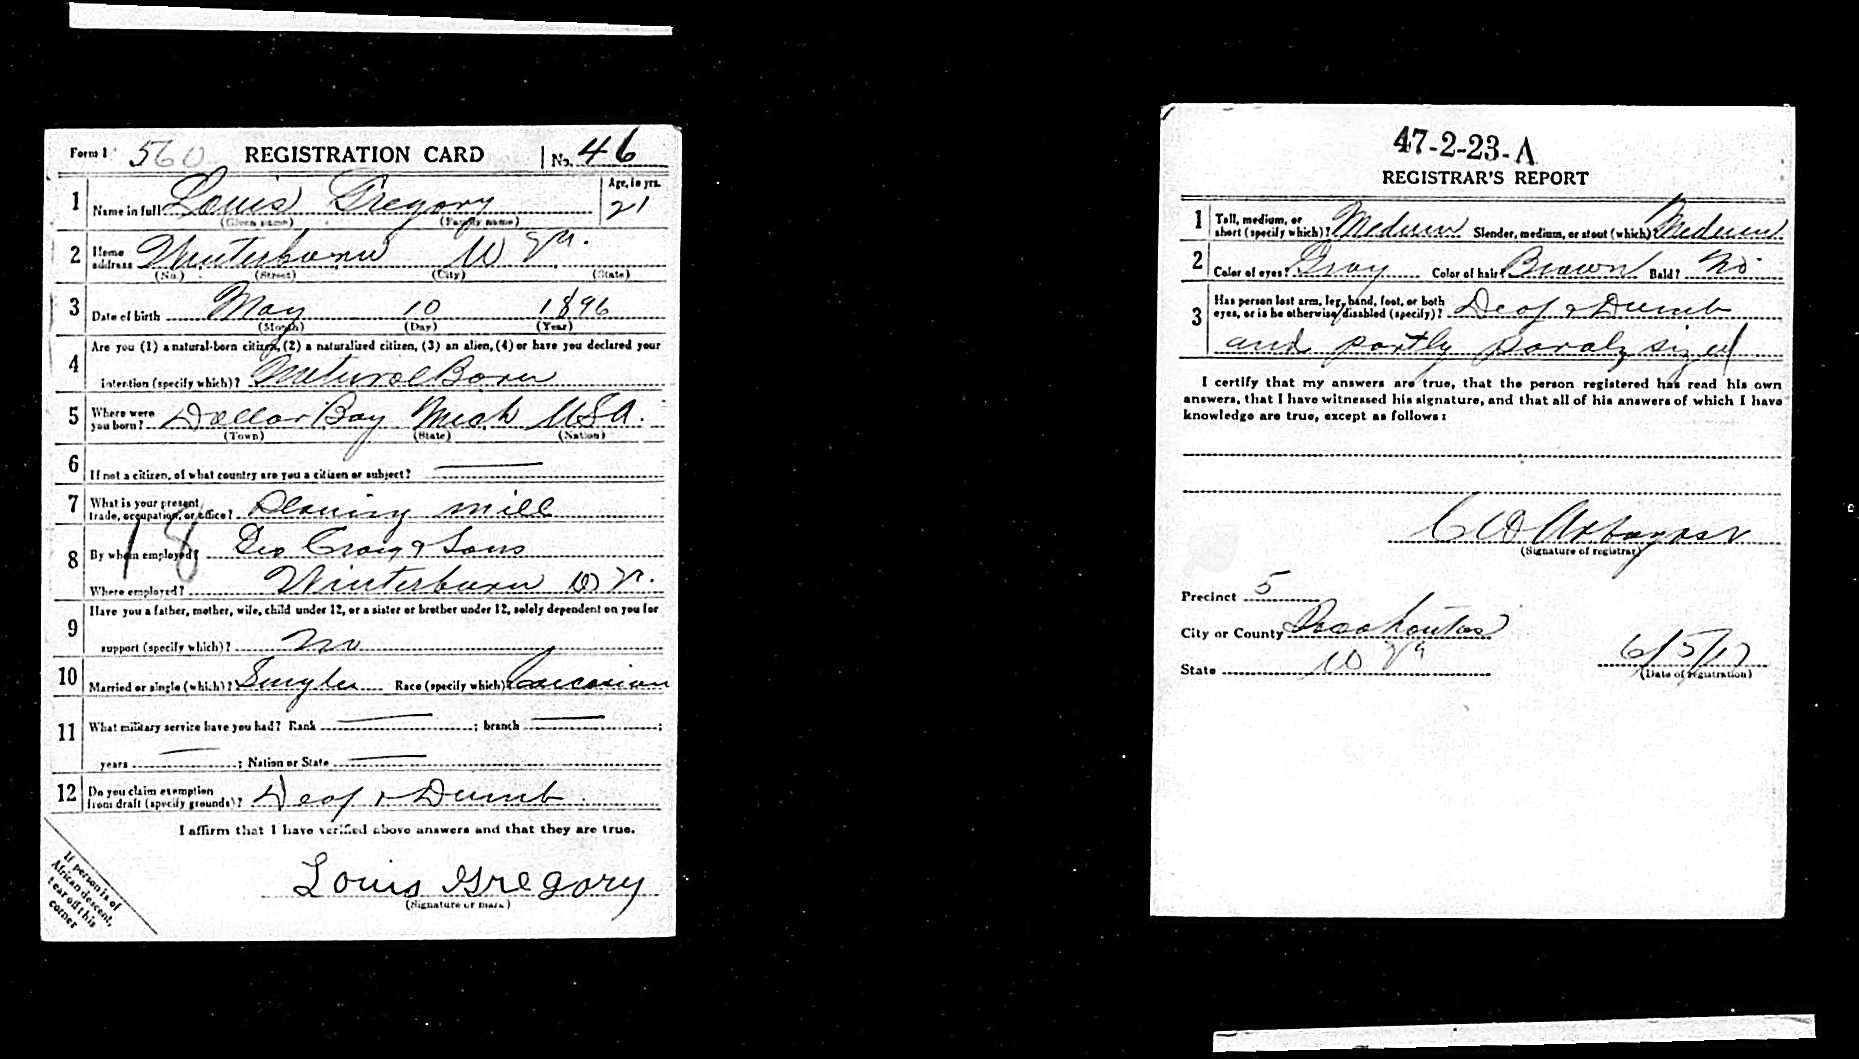 Form 1 560 REGISTRATION CARD No. 46
1 Name in full Louis Gregory Age, in yrs. 21
(Given name) (Family name)
2 Home address Winterburn W Va.
(No.) (Street) (City) (State)
3 Date of birth May 10 1896
(Month) (Day) (Year)
4 Are you (1) a natural-born citizen, (2) a naturalized citizen, (3) an alien, (4) or have you declared your
intention (specify which)? Natural Born
5 Where were you born? Dollar Bay Mich USA.
(Town) (State) (Nation)
6 If not a citizen, of what country are you a citizen or subject?
7 What is your present trade, occupation, or office? Planing mill
18
8 By whom employed? Geo Craig & Sons
Where employed? Winterburn W Va.
9 Have you a father, mother, wife, child under 12, or a sister or brother under 12, solely dependent on you for
support (specify which)? No
10 Married or single (which)? Single Race (specify which)? Caucasian
11 What military service have you had? Rank ; branch ;
years ; Nation or State
12 Do you claim exemption from draft (specify grounds)? Deaf & Dumb
I affirm that I have verified above answers and that they are true.
Louis Gregory
(Signature or mark)
If person is of
African descent,
tear off this
corner
47-2-23-A
REGISTRAR'S REPORT
1 Tall, medium, or short (specify which)? Medium Slender, medium, or stout (which)? Medium
2 Color of eyes? Gray Color of hair? Brown Bald? No
3 Has person lost arm, leg, hand, foot, or both
eyes, or is he otherwise disabled (specify)? Deaf & Dumb
and partly paralysized
I certify that my answers are true, that the person registered has read his own
answers, that I have witnessed his signature, and that all of his answers of which I have
knowledge are true, except as follows:
C D
(Signature of registrar)
Precinct 5
City or County Pocahontas
State W Va
6/5/17
(Date of registration)